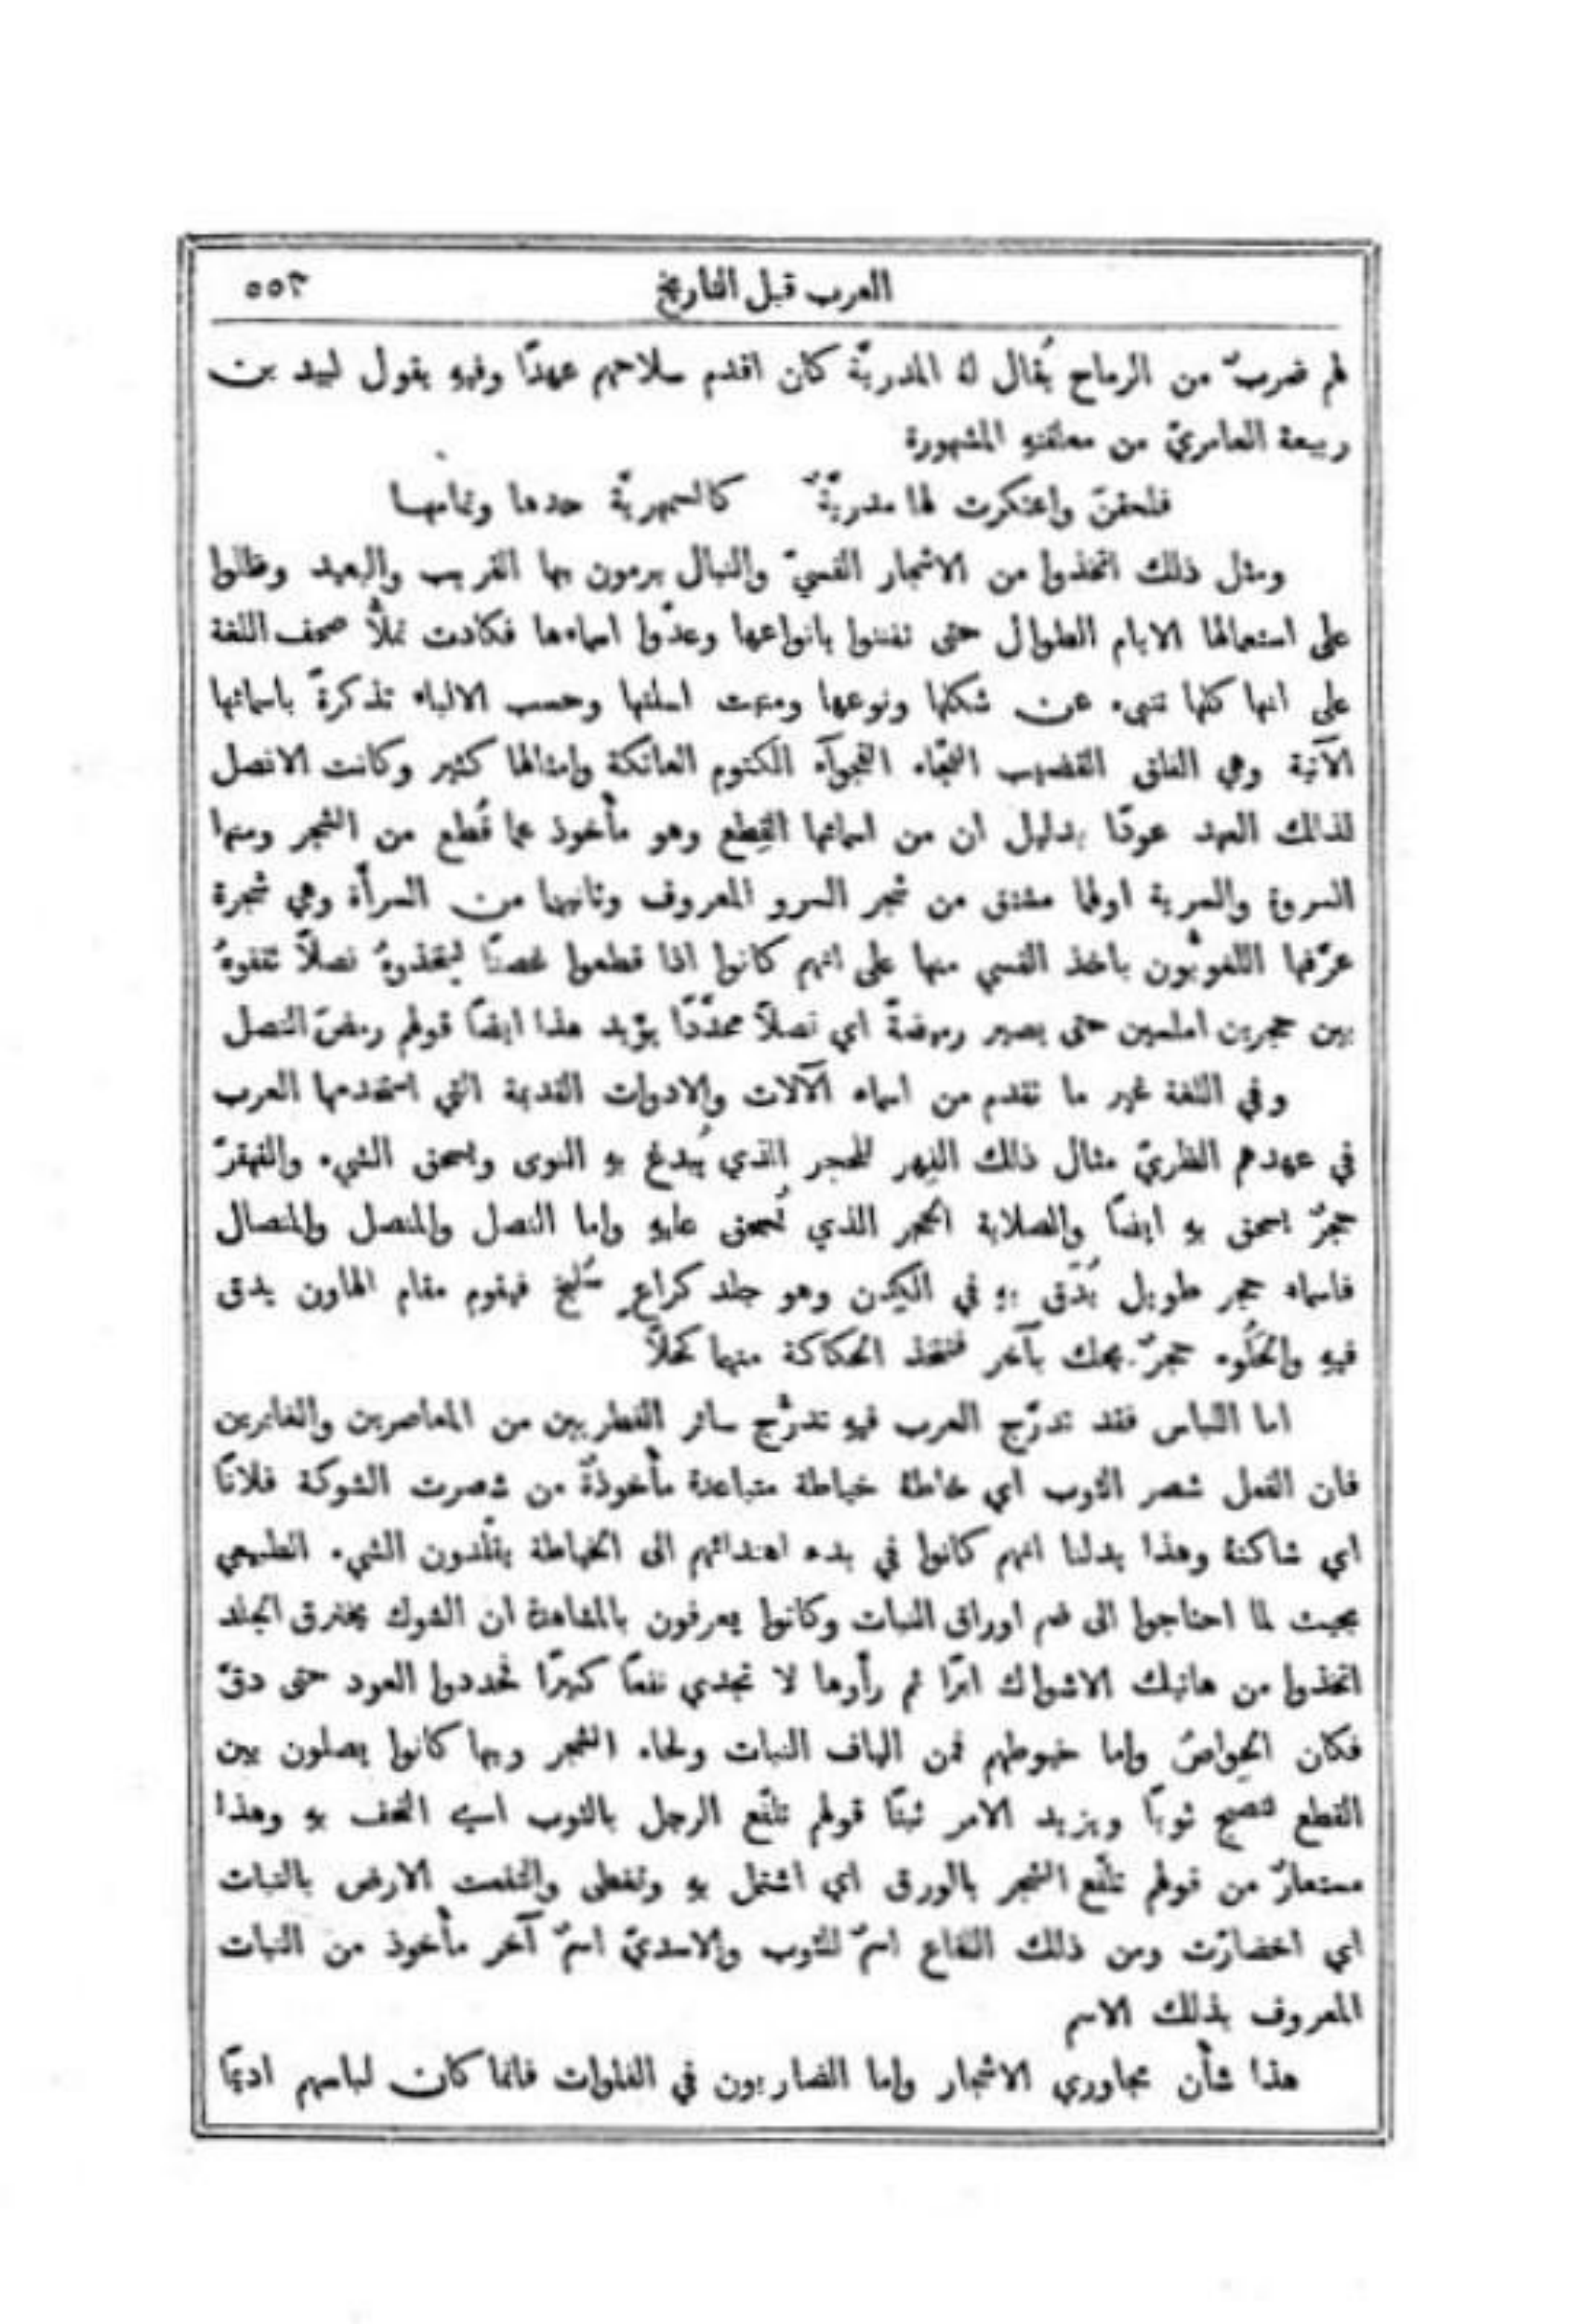 العرب قبل التاريخ ٥٥٣
لهم ضربٌ من الرماح يُقال له المدريّة كان اقدم سلاحهم عهدًا وفيهِ يقول لبيد بن
ربيعة العامريّ من معلقتهِ المشهورة
فلحقنَ واعتكرت لها مدريّةٌ كالسمهريّة حدها وتمامها
ومثل ذلك اتخذوا من الاشجار القسيّ والنبال يرمون بها القريب والبعيد وظلوا
على استعمالها الايام الطوال حتى تفننوا بانواعها وعدّوا اسماءها فكادت تملأ صحف اللغة
على انها كلها تنبىء عن شكلها ونوعها ومنبت اسلتها وحسب الالباء تذكرةً باسمائها
الآتية وهي الفلق القضيب الفجّاء الفجوآء الكتوم العاتكة وامثالها كثير وكانت الانصل
لذلك العهد عودًا بدليل ان من اسمائها القِطع وهو مأخوذ عما قُطع من الشجر ومنها
السروة والسرية اولها مشتق من شجر السرو المعروف وثانيهما من السرأة وهي شجرة
عرّفها اللغويُّون باخذ القسي منها على انهم كانوا اذا قطعوا غصنًا ليتخذوهُ نصلاً
بين حجرين املسين حتى يصير رميضةً اي نصلاً محدَّدًا يؤيد هذا ايضًا قولهم رمضَ النصل
وفي اللغة غير ما تقدم من اسماء الآلات والادوات القديمة التي استخدمها العرب
في عهدهم الظريّ مثال ذلك الفهر للحجر الذي يُدغ بهِ النوى ويسحق الشيء والقهقرّ
حجرٌ يسحق بهِ ايضًا والصلاية الحجر الذي يُسحق عليهِ واما النصل والمنصل والمنصال
فاسماء حجر طويل يُدَق بهِ في الكِدن وهو جلد كراعٍ سُلخ فيقوم مقام الهاون يدق
فيهِ والحَلُوء حجرٌ يحك بآخر فتتخذ الحكاكة منهما كحلاً
اما اللباس فقد تدرّج العرب فيهِ تدرُّج سائر الفطريين من المعاصرين والغابرين
فان الفعل شصر الثوب اي خاطهُ خياطة متباعدة مأخوذةٌ من شصرت الشوكة فلانًا
اي شاكتهُ وهذا يدلنا انهم كانوا في بدء اهتدائهم الى الخياطة يقلّدون الشيء الطبيعي
بحيث لما احتاجوا الى ضم اوراق النبات وكانوا يعرفون بالمشاهدة ان الشوك يخترق الجلد
اتخذوا من هاتيك الاشواك ابرًا ثم رأوها لا تجدي نفعًا كبيرًا فحددوا العود حتى دقّ
فكان الحِواصُ واما خيوطهم فمن الياف النبات ولحاء الشجر وبها كانوا يصلون بين
القطع لتصبح ثوبًا ويزيد الامر ثبتًا قولهم تلفّع الرجل بالثوب اي التحف بهِ وهذا
مستعارٌ من قولهم تلفّع الشجر بالورق اي اشتمل بهِ وتغطى والتفعت الارض بالنبات
اي اخضارّت ومن ذلك اللفاع اسمٌ للثوب والاسديّ اسمٌ آخر مأخوذ من النبات
المعروف بذلك الاسم
هذا شأن مجاوري الاشجار واما الضاربون في الفلوات فانما كان لباسهم اديمًا